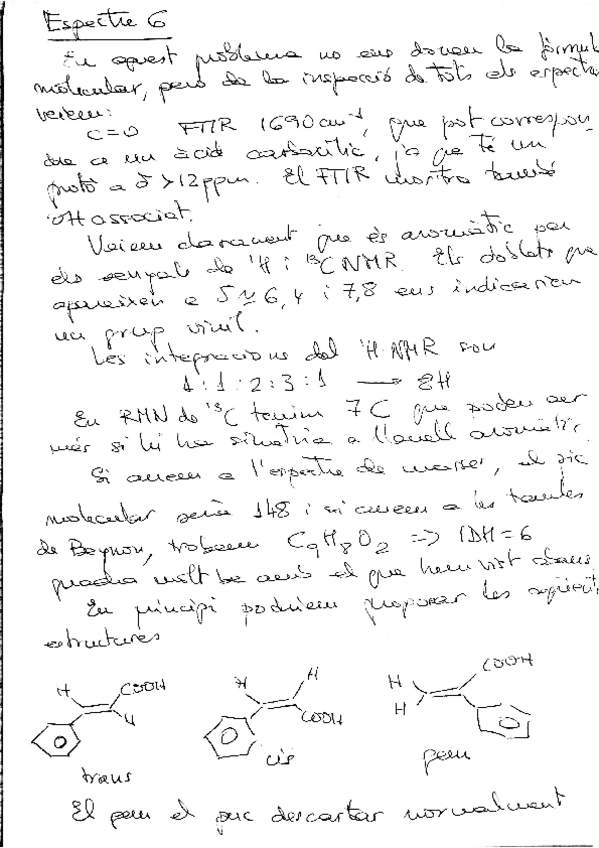 Espectre 6
En aquest problema no ens donen la fórmul
molecular, però de la inspecció de tots els espectre
veiem:
C=O FTIR 1690cm⁻¹, que pot correspon
dre a un àcid carboxílic, ja que té un
protó a δ >12ppm. El FTIR mostra també
OH associat.
Veiem clarament que és aromàtic pen
els senyals de ¹H i ¹³C NMR. Els doblets que
apareixen a δ ≃ 6,4 i 7,8 ens indicarien
un grup vinil.
Les integracions del ¹H-NMR son
1 : 1 : 2 : 3 : 1 → 8H
En RMN de ¹³C tenim 7C que poden ser
més si hi ha simetria a l'anell aromàtic.
Si anem a l'espectre de masses, el pic
molecular seria 148 i si anem a les taules
de Beynon, trobem C₉H₈O₂ ⇒ IDH=6
quadra molt bé amb el que hem vist abans
En principi podríem proposar les següents
estructures
H COOH H H H COOH
H COOH H
trans cis gem
El gem el puc descartar normalment